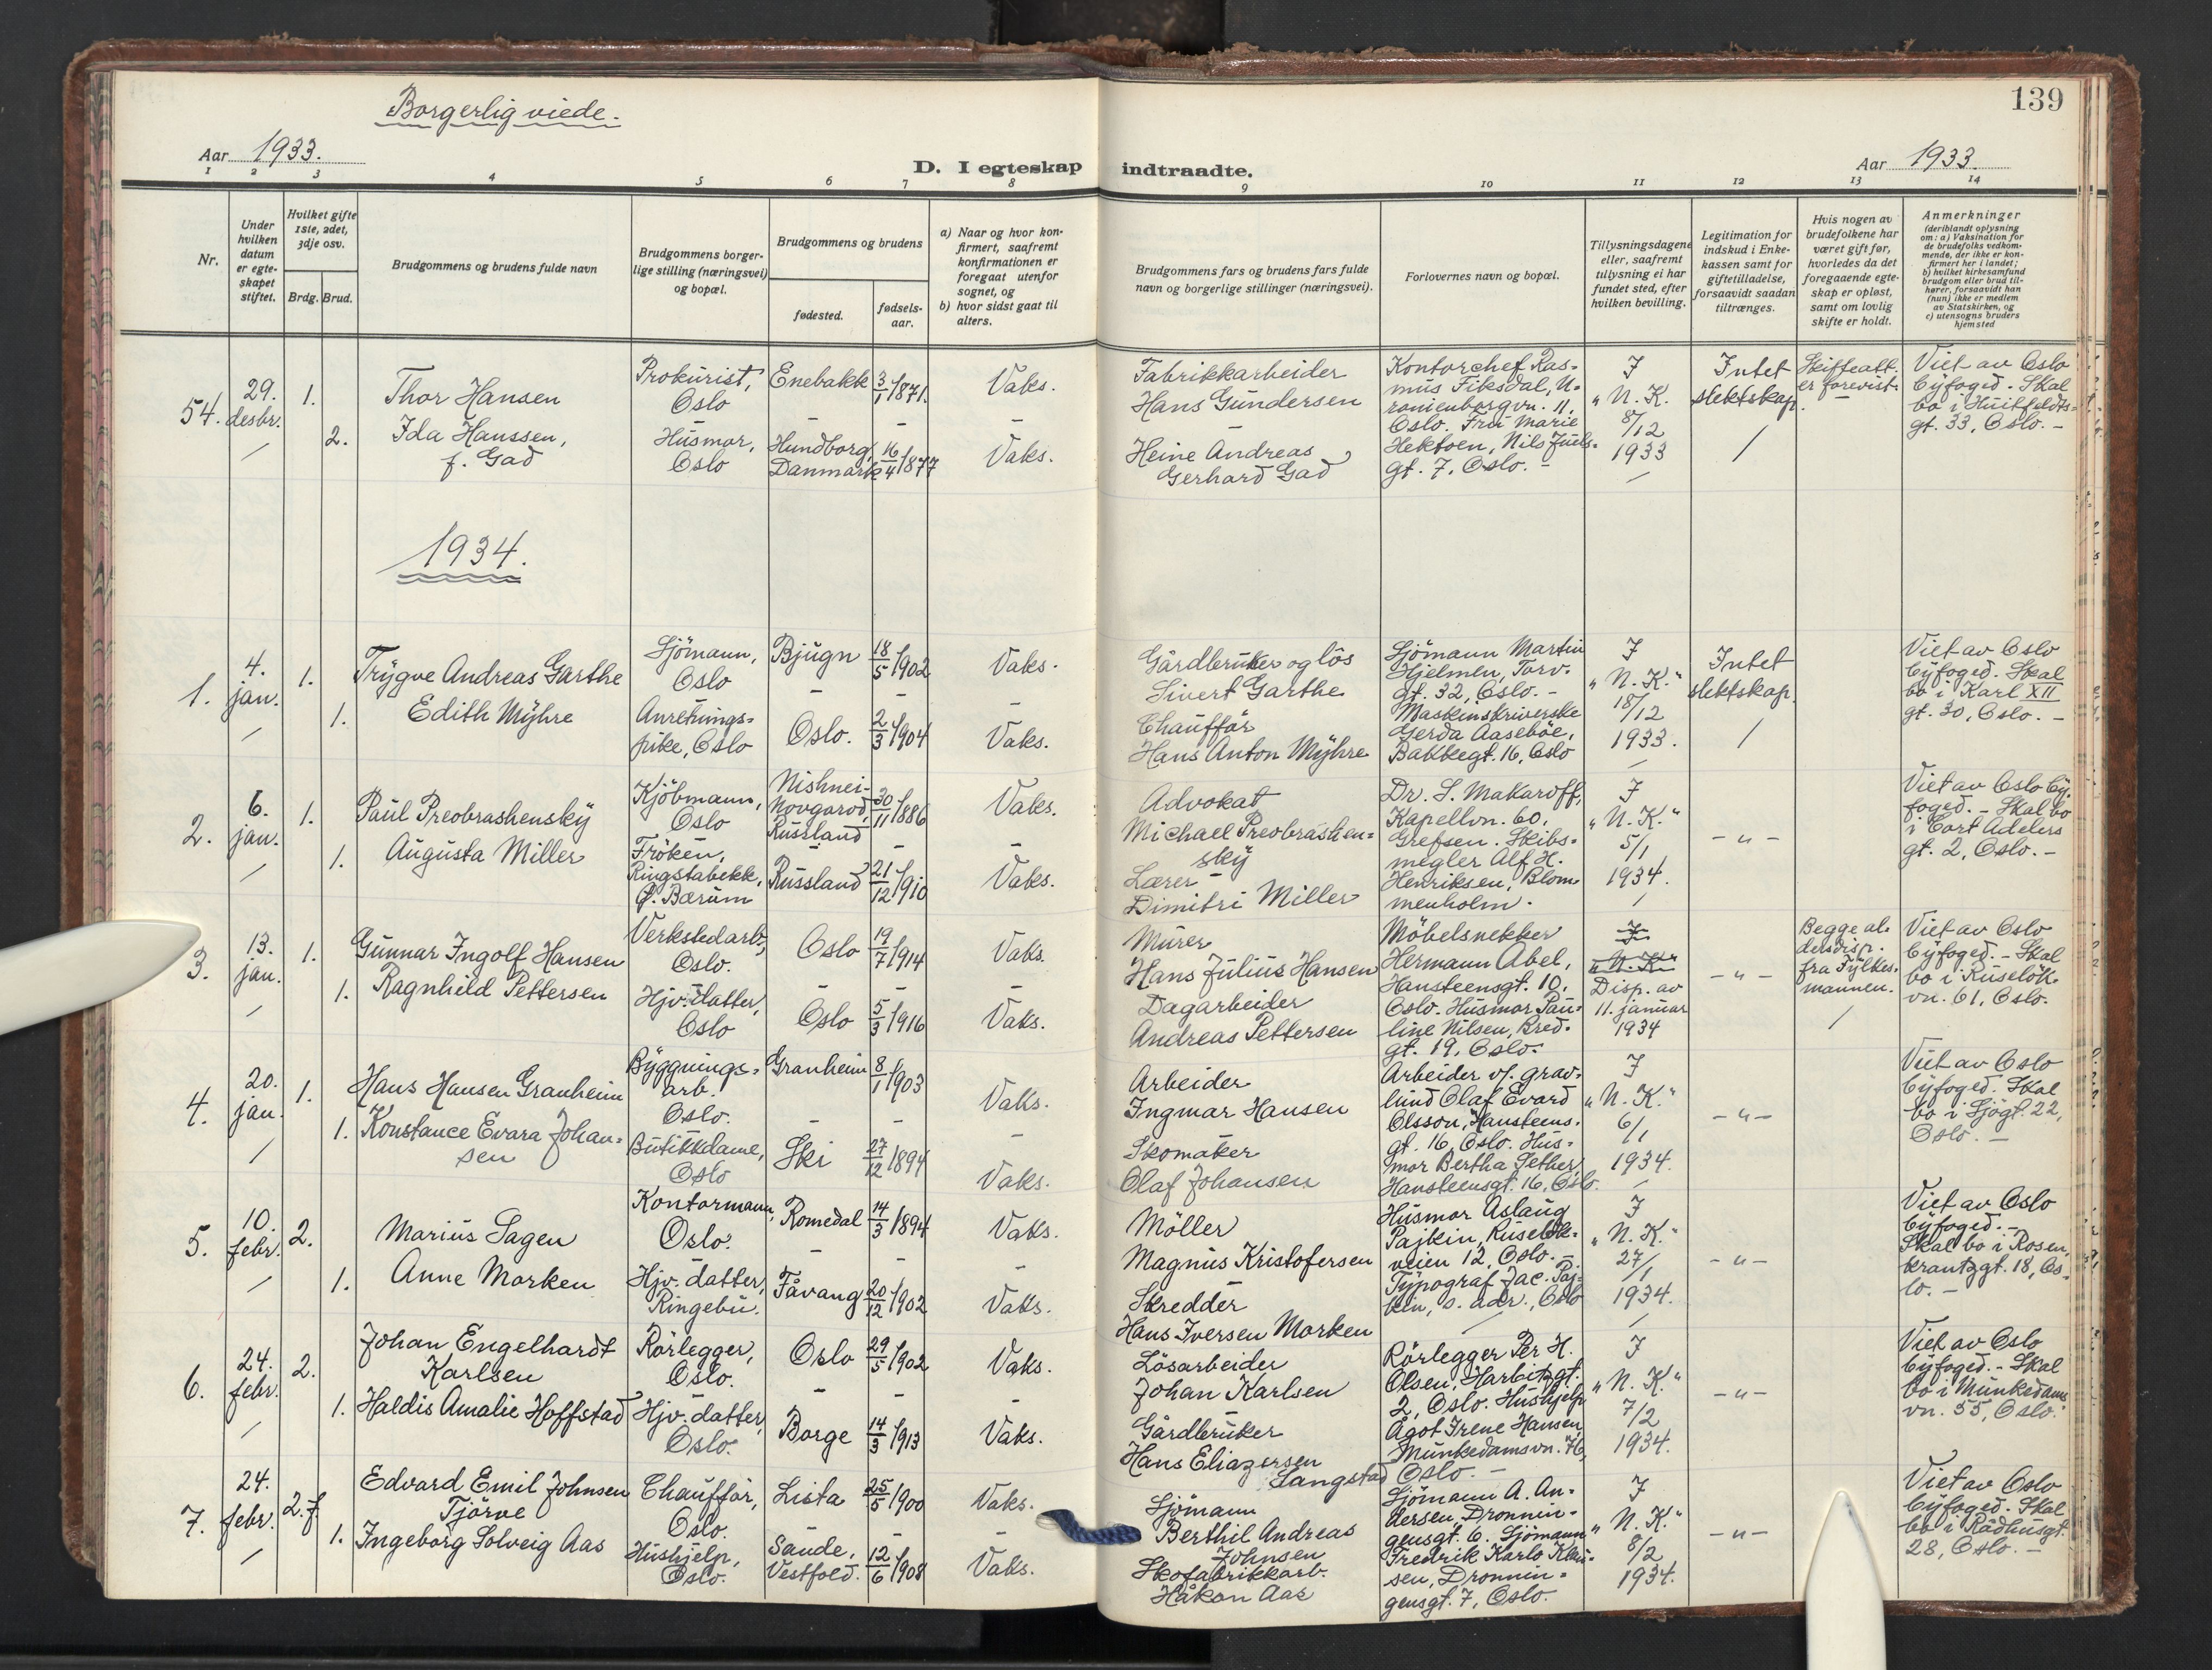 Borgerlig viede.
139
Aar 1933.
D. I egteskap indtraadte.
Aar 1933.
1 2 3 4 5 6 7 8 9 10 11 12 13 14
Nr.
Under
hvilken
datum
er egte-
skapet
stiftet.
Hvilket gifte
1ste, 2det,
3dje osv.
Brdg. Brud.
Brudgommens og brudens fulde navn
Brudgommens borger-
lige stilling (næringsvei)
og bopæl.
Brudgommens og brudens
fødested.
fødsels-
aar.
a) Naar og hvor kon-
firmert, saafremt
konfirmationen er
foregaat utenfor
sognet, og
b) hvor sidst gaat til
alters.
Brudgommens fars og brudens fars fulde
navn og borgerlige stillinger (næringsvei).
Forlovernes navn og bopæl.
Tillysningsdagene
eller, saafremt
tillysning ei har
fundet sted, efter
hvilken bevilling.
Legitimation for
indskud i Enke-
kassen samt for
giftetilladelse,
forsaavidt saadan
tiltrænges.
Hvis nogen av
brudefolkene har
været gift før,
hvorledes da det
foregaaende egte-
skap er opløst,
samt om lovlig
skifte er holdt.
Anmerkninger
(deriblandt oplysning
om: a) Vaksination for
de brudefolks vedkom-
mende, der ikke er kon-
firmert her i landet;
b) hvilket kirkesamfund
brudgom eller brud til-
hører, forsaavidt han
(hun) ikke er medlem
av Statskirken, og
c) utensogns bruders
hjemsted
54.
29.
desbr.
1.
2.
Thor Hansen
Ida Hanssen,
f. Gad
Prokurist,
Oslo
Husmor,
Oslo
Enebakk
Hundborg,
Danmark
3/1 1871.
16/4 1877
Vaks.
Vaks.
Fabrikkarbeider
Hans Gundersen
Heine Andreas
Gerhard Gad
Kontorchef Ras-
mus Fiksdal, U-
ranienborgvn. 11,
Oslo. Fru Marie
Hektoen, Nils Juels-
gt. 7, Oslo. -
I
"N. K.
8/12
1933
Intet
slektskap.
Skifteatt.
er forevist.
Viet av Oslo
byfoged. Skal
bo i Huitfeldts-
gt. 33, Oslo. -
1934.
1.
4.
jan.
1.
1.
Trygve Andreas Garthe
Edith Myhre
Sjömann,
Oslo
Anretnings-
pike, Oslo
Bjugn
Oslo.
18/5 1902
2/3 1904
Vaks.
Vaks.
Gårdbruker og lös
Sivert Garthe
Chaufför
Hans Anton Myhre
Sjömann Martin
Hjelmen, Torv-
gt. 32, Oslo. -
Maskinskriverske
Gerda Aaseböe,
Bakkegt. 16, Oslo
I
"N. K."
18/12
1933.
Intet
slektskap.
Viet av Oslo
byfoged. Skal
bo i Karl XII
gt. 30, Oslo. -
2.
6.
jan.
1.
1.
Paul Preobrashensky
Augusta Miller
Kjöbmann,
Oslo
Fröken,
Ringstabekk,
Ø. Bærum
Nishnei-
Novgorod,
Russland
Russland
30/11 1886
21/12 1910
Vaks.
Vaks.
Advokat
Michael Preobrashen-
sky
Lærer
Dimitri Miller
Dr. S. Makaroff,
Kapellvn. 60,
Grefsen. Skibs-
megler Alf H.
Henriksen, Blom-
menholm.
I
"N. K."
5/1
1934.
- " -
Viet av Oslo by-
foged. - Skal bo
i Cort Adelers
gt. 2, Oslo. -
3.
13.
jan.
1.
1.
Gunnar Ingolf Hansen
Ragnhild Pettersen
Verkstedarb.,
Oslo.
Hjv. datter,
Oslo
Oslo
Oslo
19/7 1914
5/3 1916
Vaks.
Vaks.
Murer
Hans Julius Hansen
Dagarbeider
Andreas Pettersen
Möbelsnekker
Hermann Abel,
Hansteensgt. 10,
Oslo. Husmor Pau-
line Nilsen, Bred-
gt. 19, Oslo.
I
"N. K."
Disp. av
11. januar
1934
- " -
Begge al-
dersdisp.
fra Fylkes-
mannen.
Viet av Oslo
byfoged. - Skal
bo i Ruselök-
vn. 61, Oslo.
4.
20.
jan.
1.
1.
Hans Hansen Granheim
Konstance Evara Johan-
sen
Bygnings-
arb.
Oslo.
Butikkdame,
Oslo
Granheim
Ski
8/1 1903
27/12 1894
Vaks.
Vaks.
Arbeider
Ingmar Hansen
Skomaker
Olaf Johansen
Arbeider v/. grav-
lund Olaf Evard
Olsson, Hansteens-
gt. 16, Oslo. Hus-
mor Bertha Sether,
Hansteensgt. 16, Oslo.
I
"N. K."
6/1
1934.
- " -
Viet av Oslo
byfoged. Skal
bo i Sjögt. 22,
Oslo. -
5.
10.
febr.
2.
1.
Marius Sagen
Anne Morken
Kontormann,
Oslo.
Hjv. datter,
Ringebu.
Romedal
Fåvang
14/3 1894
20/12 1902
Vaks.
Vaks.
Möller
Magnus Kristofersen
Skredder
Hans Iversen Morken
Husmor Aslaug
Pajkin, Ruselök-
veien 12, Oslo. -
Typograf Jac. Paj-
kin, s. adr., Oslo
I
"N. K."
27/1
1934.
- " -
Viet av Oslo
byfoged. -
Skal bo i Rosen-
krantzgt. 18, Os-
lo. -
6.
24.
febr.
2.
1.
Johan Engelhardt
Karlsen
Haldis Amalie Hoffstad
Rörlegger,
Oslo.
Hjv. datter,
Oslo.
Oslo
Borge
29/5 1902
14/3 1913
Vaks.
Vaks.
Lösarbeider
Johan Karlsen
Gårdbruker
Hans Eliazersen
Langstad
Rörlegger Per H.
Olsen, Harbitzgt.
2, Oslo. Hushjelp
Ågot Irene Hansen,
Munkedamsvn. 76,
Oslo. -
I
"N. K."
7/2
1934.
- " -
Viet av Oslo
byfoged. - Skal
bo i Munkedams
vn. 55, Oslo.
7.
24.
febr.
2.f.
1.
Edvard Emil Johnsen
Tjörve
Ingeborg Solveig Aas
Chaufför,
Oslo.
Hushjelp,
Oslo.
Lista
Sande,
Vestfold.
25/5 1900
12/6 1908
Vaks.
Vaks.
Sjömann
Berthil Andreas
Johnsen
Skofabrikkarb.
Håkon Aas
Sjömann A. An-
dersen, Dronnin-
gensgt. 6. Sjömann
Fredrik Karlo Klau-
sen, Dronnin-
gensgt. 7, Oslo.
I
"N. K."
8/2
1934.
- " -
Viet av Oslo
byfoged. Skal
bo i Rådhusgt.
28, Oslo. -